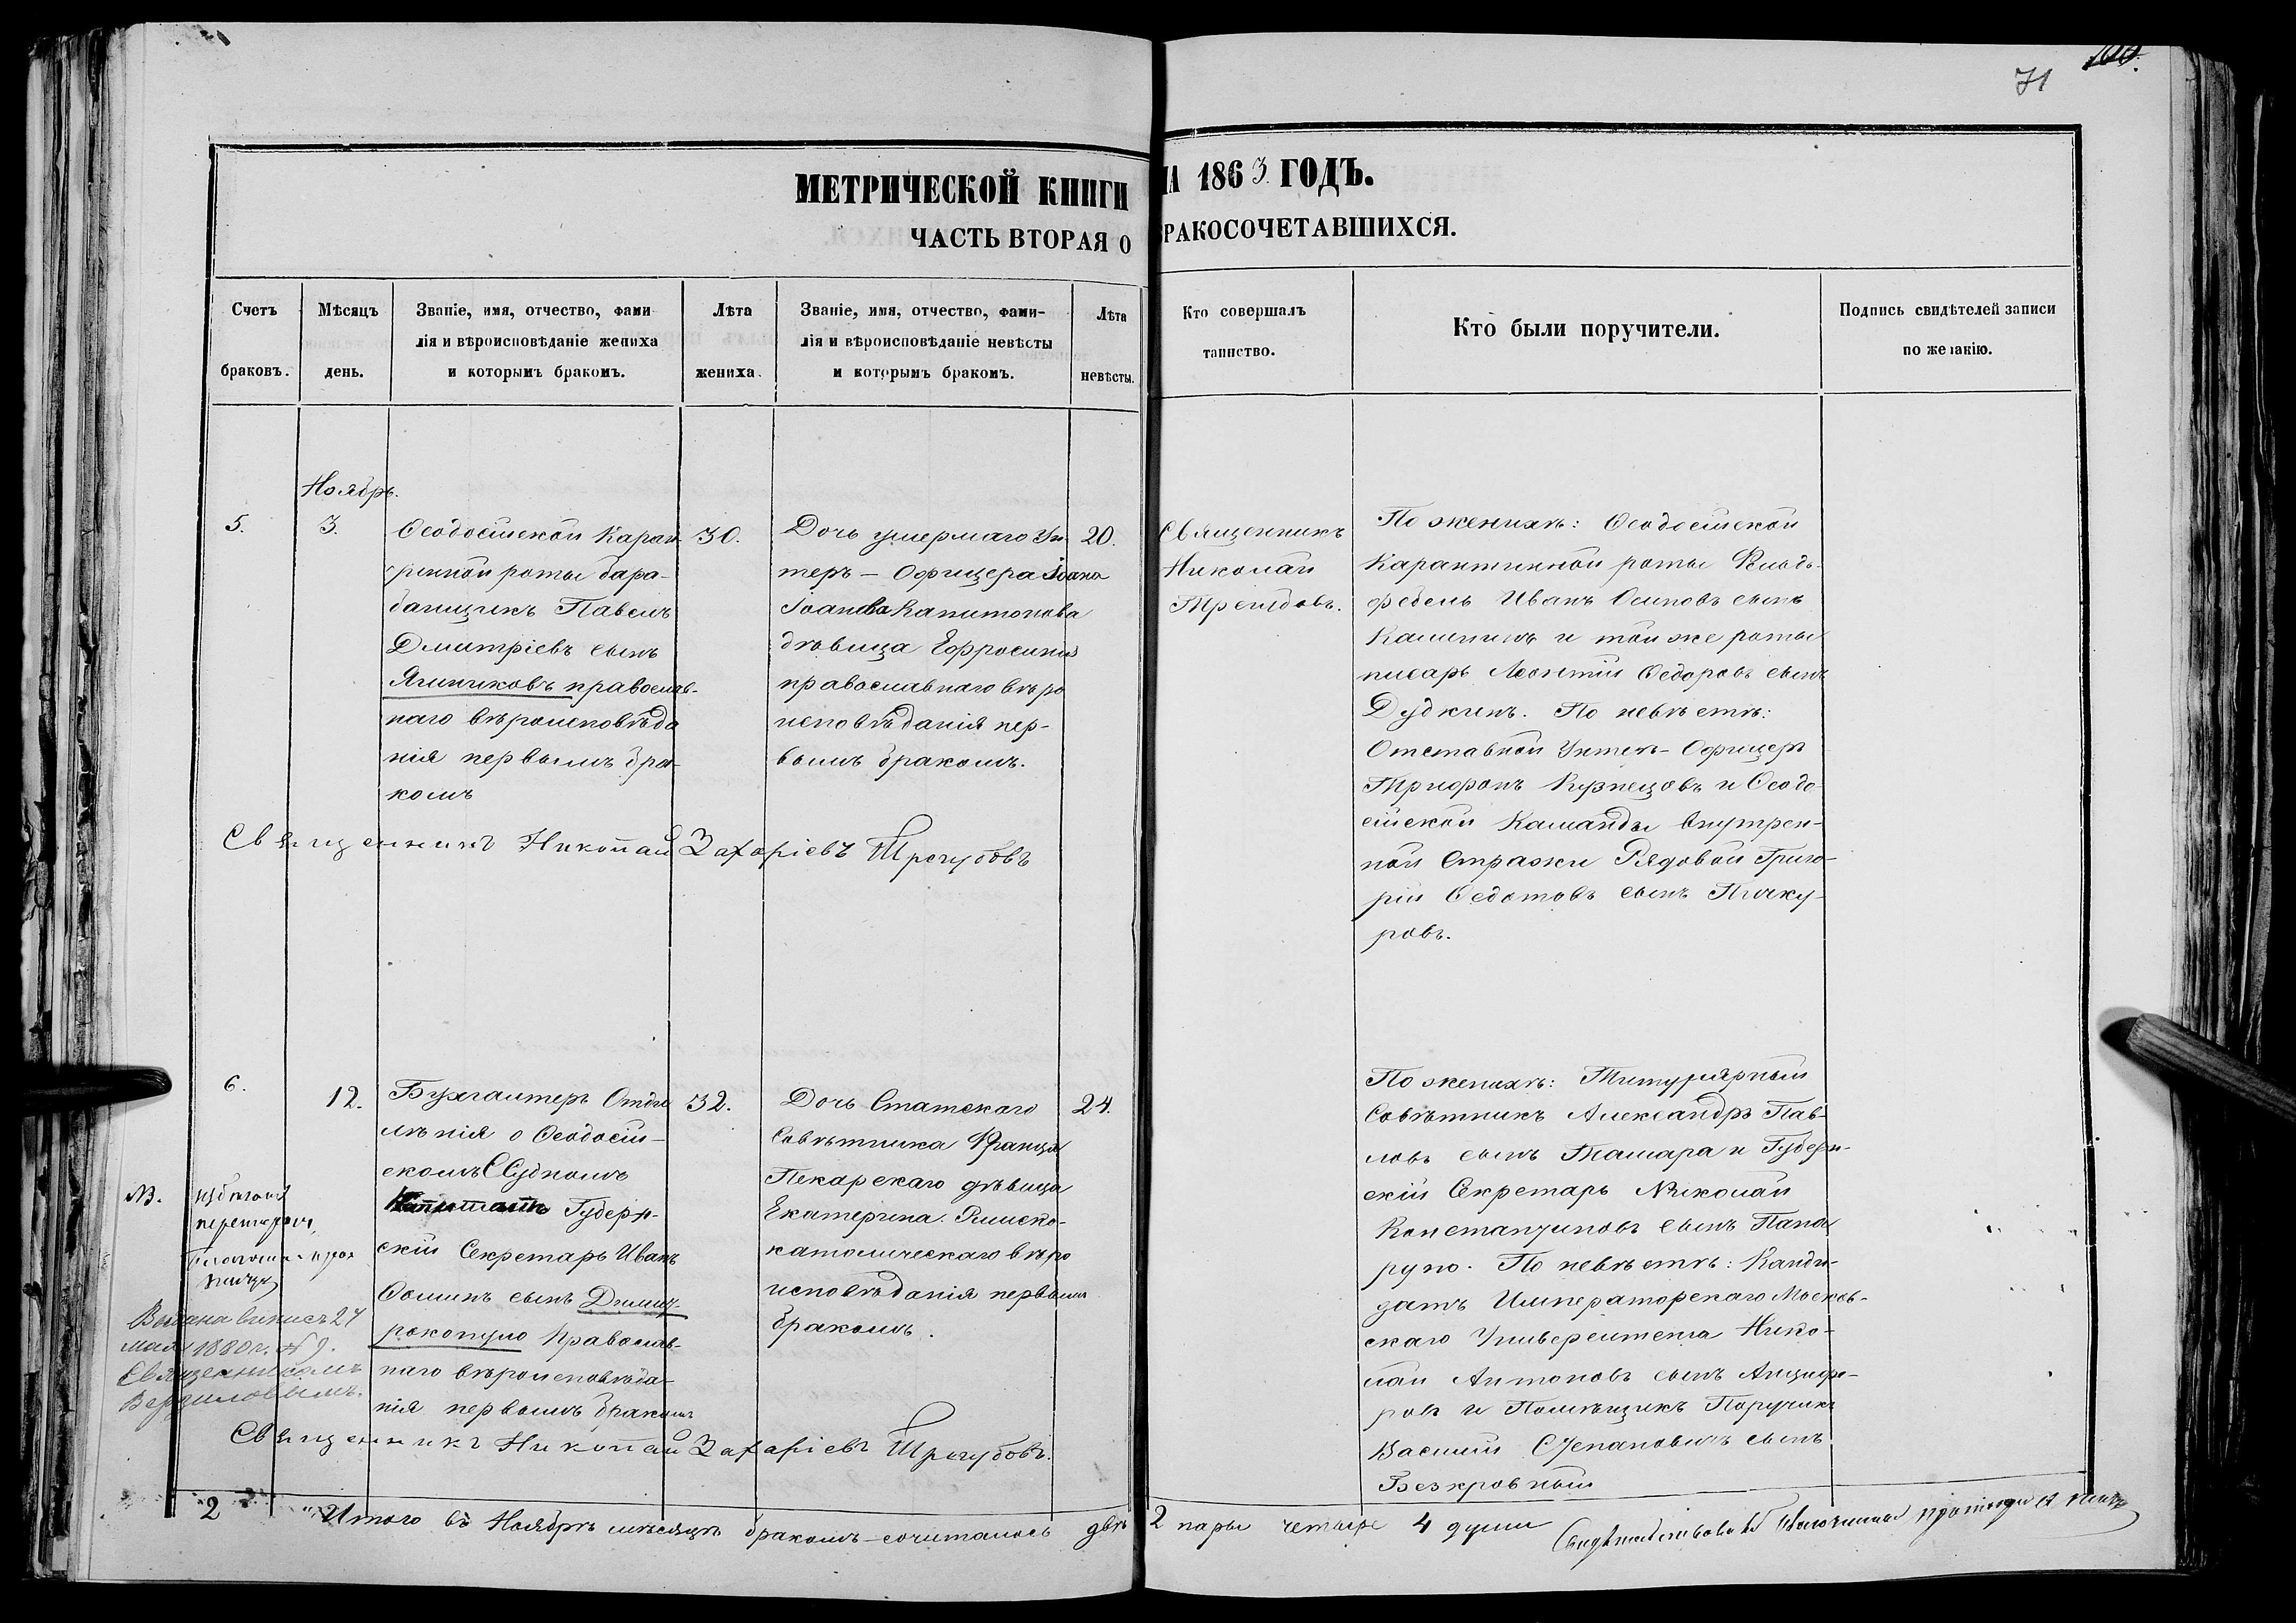 71
МЕТРИЧЕСКОЙ КНИГИ НА 1863 ГОДЪ.
ЧАСТЬ ВТОРАЯ О БРАКОСОЧЕТАВШИХСЯ.
Счетъ браковъ.
Мѣсяцъ день.
Званіе, имя, отчество, фами
лія и вѣроисповѣданіе жениха
и которымъ бракомъ.
Лѣта жениха.
Званіе, имя, отчество, фами-
лія и вѣроисповѣданіе невѣсты
и которымъ бракомъ.
Лѣта невѣсты.
Кто совершалъ
таинство.
Кто были поручители.
Подпись свидѣтелей записи
по желанію.
Ноябрь.
5.
3.
Ѳеодосійской Каран
тинной роты бара-
банщикъ Павелъ
Дмитріевъ сынъ
Ялинковъ православ-
наго вѣроисповѣда
нія первымъ бра-
комъ
30.
Дочь умершаго Ун
теръ-Офицера Іоана
Іоанова Капитонова
дѣвица Ефросинія
православнаго вѣро
исповѣданія пер-
вымъ бракомъ.
20.
Священникъ
Николай
Трегубовъ.
По женихѣ: Ѳеодосійской
Карантинной роты Фельд-
фебель Иванъ Осиповъ сынъ
и той же роты
писарь Леонтій Ѳедоровъ сынъ
Дудкинъ. По невѣстѣ:
Отставной Унтеръ-Офицеръ
Трифонъ Кузнецовъ и Ѳеодо
сійской Команды внутрен-
ной Стражи Рядовой Григо-
рій Ѳедотовъ сынъ Пичку-
ровъ.
Священникъ Николай Захаріевъ Трегубовъ
6.
12.
Бухгалтеръ Отдѣ
ленія о Ѳеодосій-
скомъ Судномъ
Губерн-
скій Секретарь Иванъ
Ѳоминъ сынъ Димит-
рокопуло Православ-
наго вѣроисповѣда-
нія первымъ бракомъ
32.
Дочь Статскаго
Совѣтника Франца
Пекарскаго дѣвица
Екатерина Римско-
католическаго вѣро
исповѣданія первымъ
бракомъ.
24.
По женихѣ: Титулярный
Совѣтникъ Александръ Пав-
ловъ сынъ Тамара и Губерн-
скій Секретарь Николай
Константиновъ сынъ Папа
руно. По невѣстѣ: Канди-
датъ Императорскаго Москов-
скаго Университета Нико-
лай Антоновъ сынъ Анцифе-
ровъ и Помѣщикъ Поручикъ
Василій Степановичъ сынъ
Безкровный
NB.
Выдана выпись 24
мая 1880 г. № 9.
Священникомъ
Священникъ Николай Захаріевъ Трегубовъ.
2 Итого въ Ноябрѣ мѣсяцѣ бракомъ сочиталось двѣ 2 пары четыре 4 души